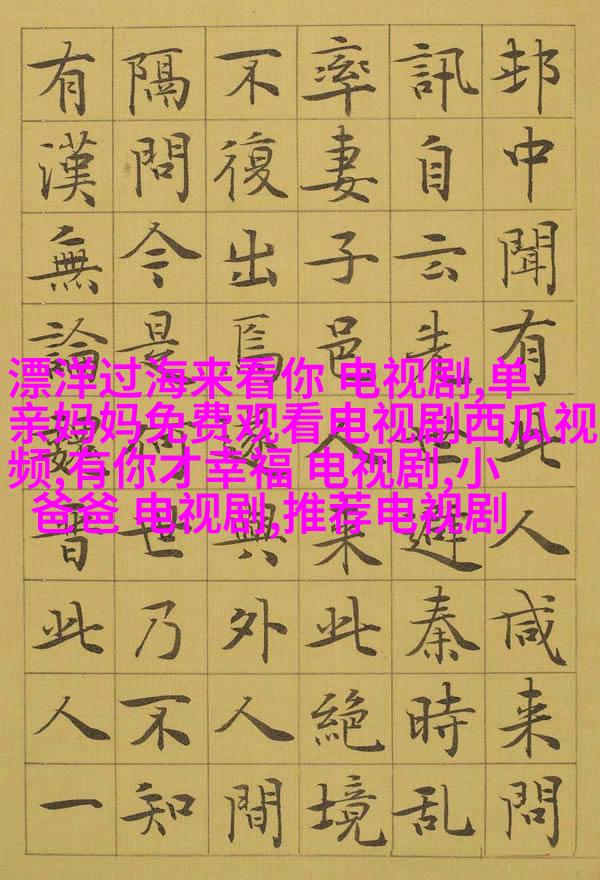 邨中聞有此人咸来問
訊自云先世避秦時乱
率妻子邑人来此絕境
不復出焉遂與外人間
隔問今是何世乃不知
有漢無論魏晋此人一
漂洋过海来看你 电视剧,单
亲妈妈免费观看电视剧西瓜视
频,有你才幸福 电视剧,小
爸爸 电视剧,推荐电视剧